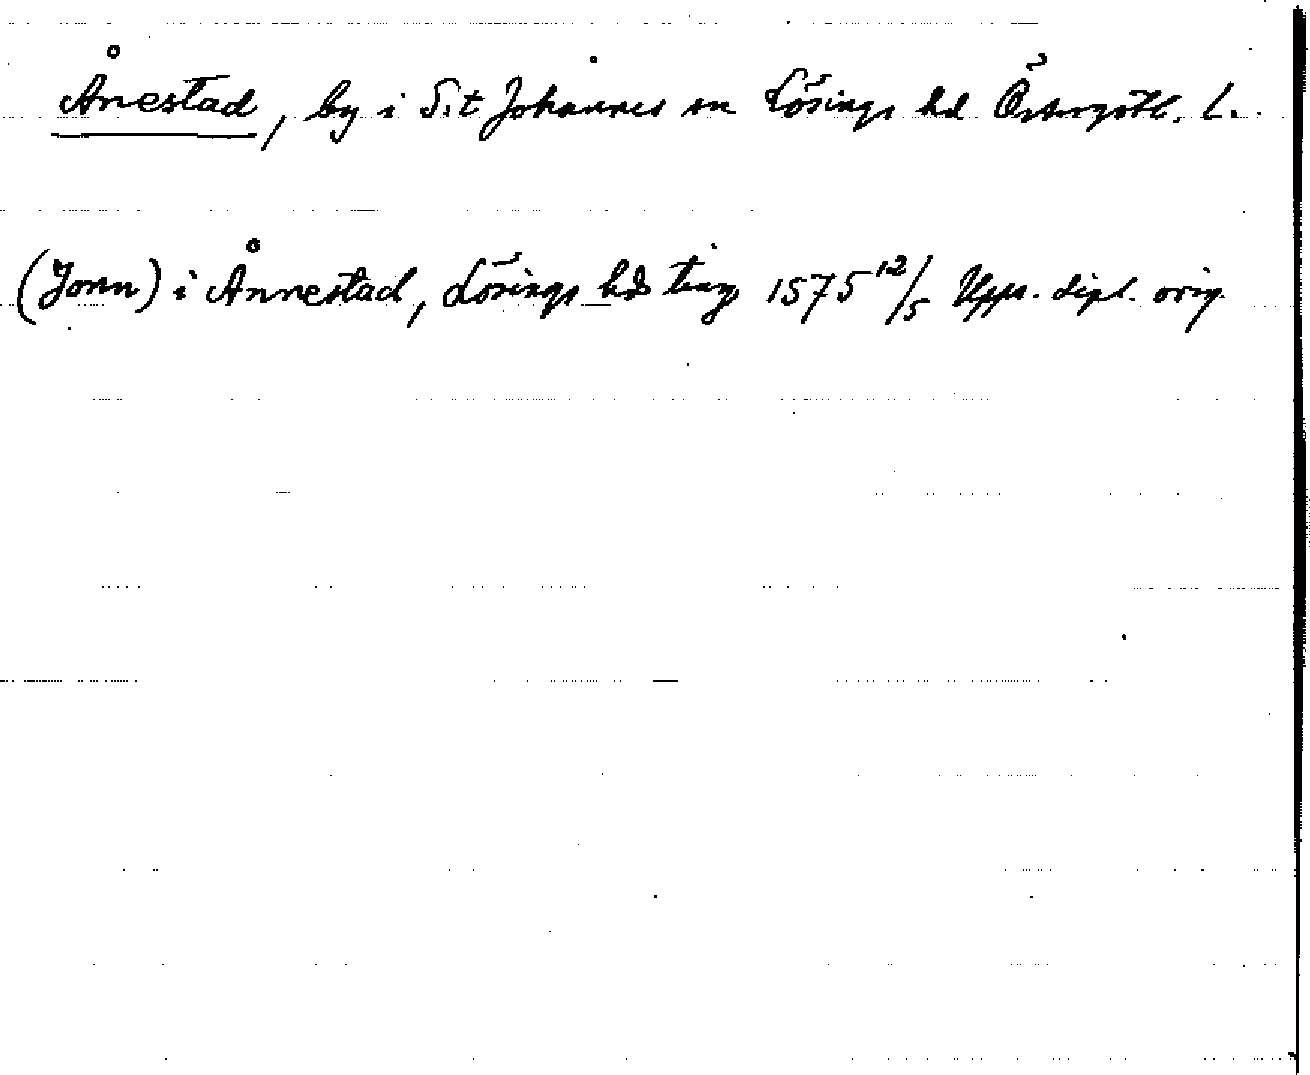 Ånestad, by i S:t Johannes sn Lösings hd Östergötl. l.
(Jonn) i Ånnestad, Lösings hds ting 1575 12/5 Upps. dipl. orig.